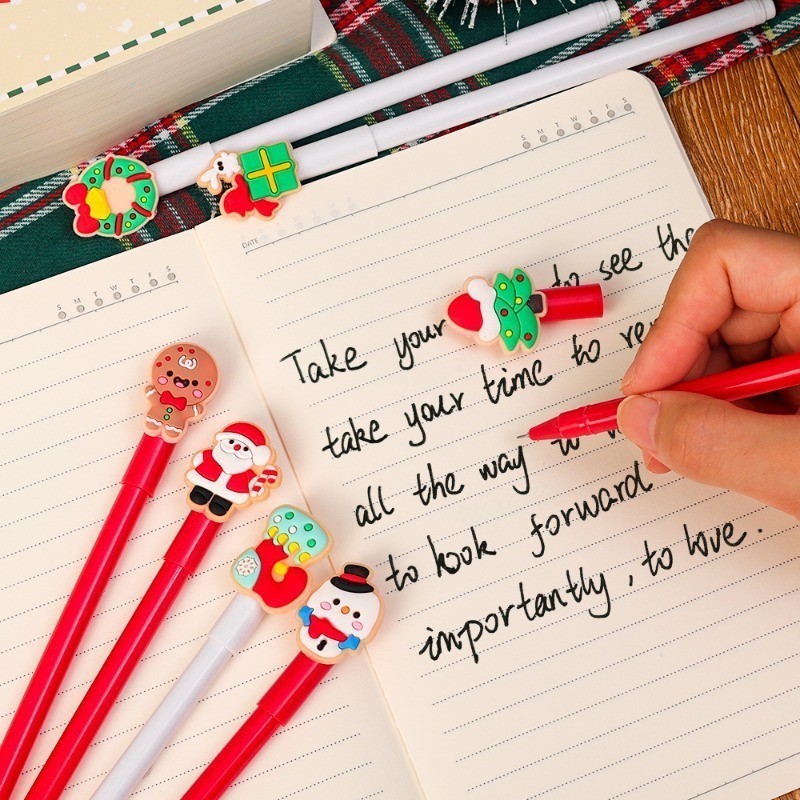 S M T W T F S
S M T W T F S
DATE
Take your to see the
take your time to
all the way to
to look forward
importantly, to love.